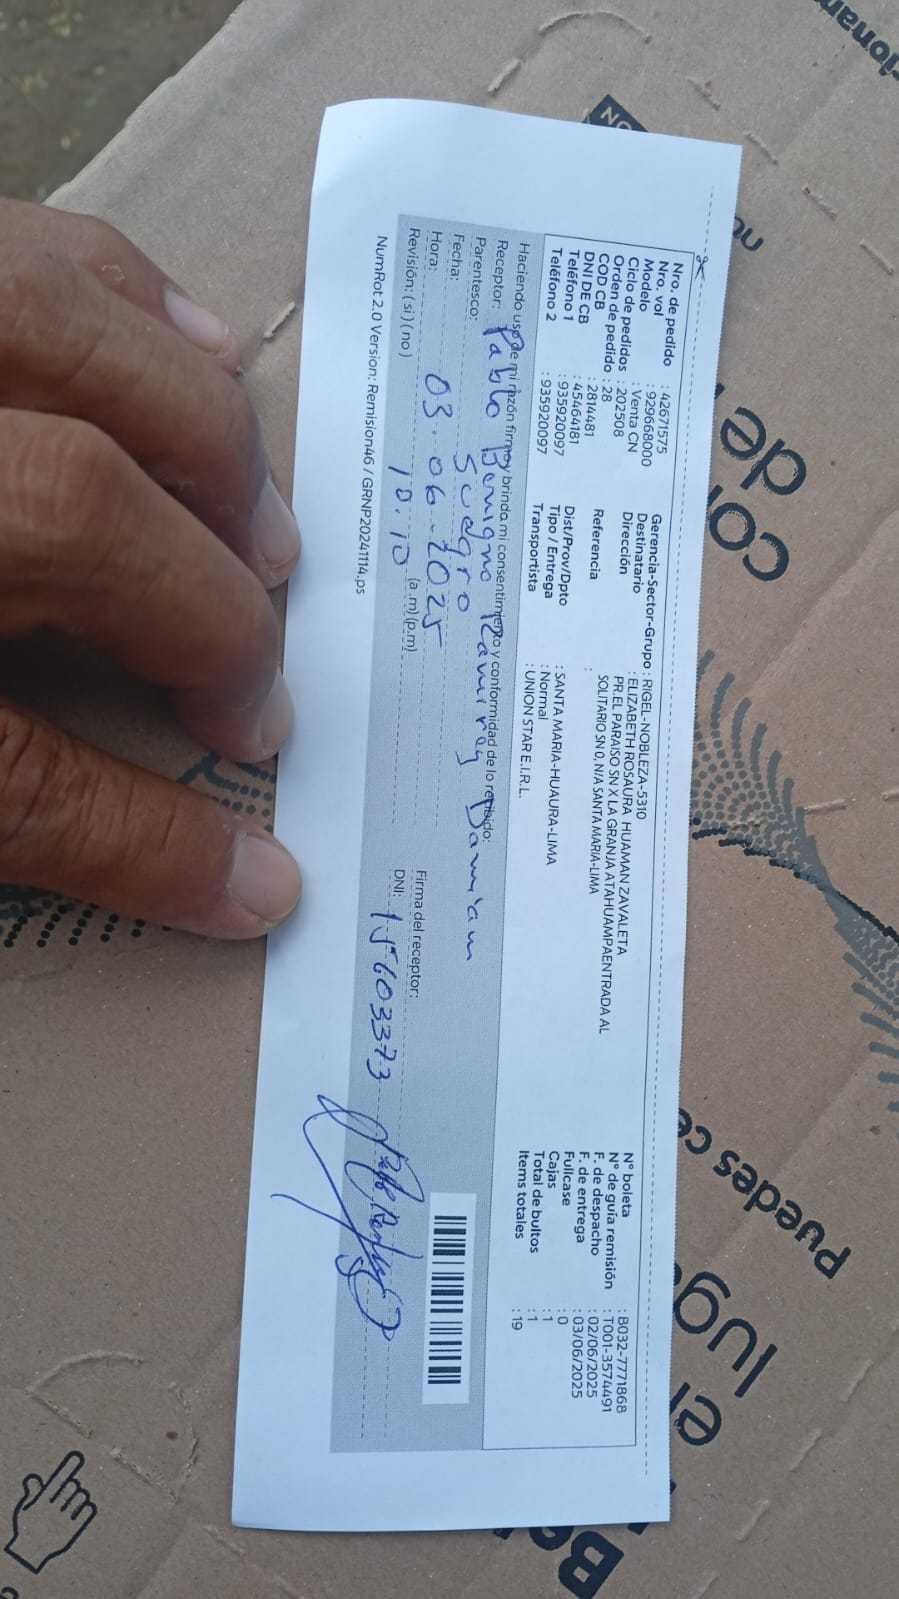 Nro. de pedido : 42671575
Nro. vol : 929668000
Modelo : Venta CN
Ciclo de pedidos : 202508
Orden de pedido : 28
COD CB : 2814481
DNI DE CB : 45464181
Teléfono 1 : 935920097
Teléfono 2 : 935920097
Gerencia-Sector-Grupo : RIGEL-NOBLEZA-5310
Destinatario : ELIZABETH ROSAURA HUAMAN ZAVALETA
Dirección : PR.EL PARAISO SN X LA GRANJA ATAHUAMPAENTRADA AL
SOLITARIO SN 0, N/A SANTA MARIA-LIMA
Referencia :
Dist/Prov/Dpto : SANTA MARIA-HUAURA-LIMA
Tipo / Entrega : Normal
Transportista : UNION STAR E.I.R.L.
N° boleta : B032-7771868
N° de guía remisión : T001-3574491
F. de despacho : 02/06/2025
F. de entrega : 03/06/2025
Fullcase : 0
Cajas : 1
Total de bultos : 1
Items totales : 19
Haciendo uso de mi razón firmo y brinda mi consentimiento y conformidad de lo recibido:
Receptor: Pablo Benigno Ramirez Damian
Parentesco: Suegro
Fecha: 03-06-2025
Hora: 10.10 (a .m) (p.m)
Revisión: ( si ) ( no )
Firma del receptor:
DNI: 15603373
NumRot 2.0 Version: Remision46 / GRNP20241114.ps
no
de
co
Puedes ce
luga
en
Bol